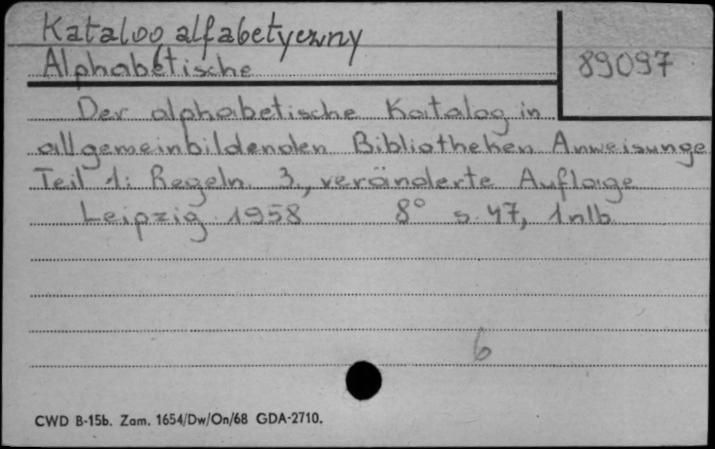 Katalog alfabetyczny
Alphabetische
89097
Der alphabetische Katalog in
allgemeinbildenden Bibliotheken Anweisunge
Teil 1: Regeln. 3., veränderte Auflage
Leipzig 1958 8° s. 47, 1nlb
6
CWD B-15b. Zam. 1654/Dw/On/68 GDA-2710.